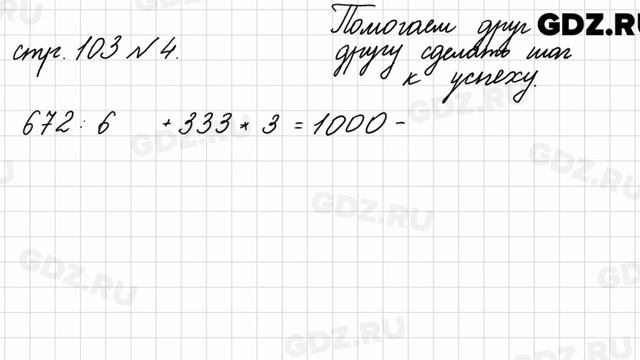 Помогаем друг
другу сделать шаг
к успеху.
GDZ.RU
стр. 103 № 4.
672 : 6 + 333 * 3 = 1000 -
GDZ.RU
GDZ.RU
GDZ.RU
GDZ.RU
GDZ.RU
GDZ.RU